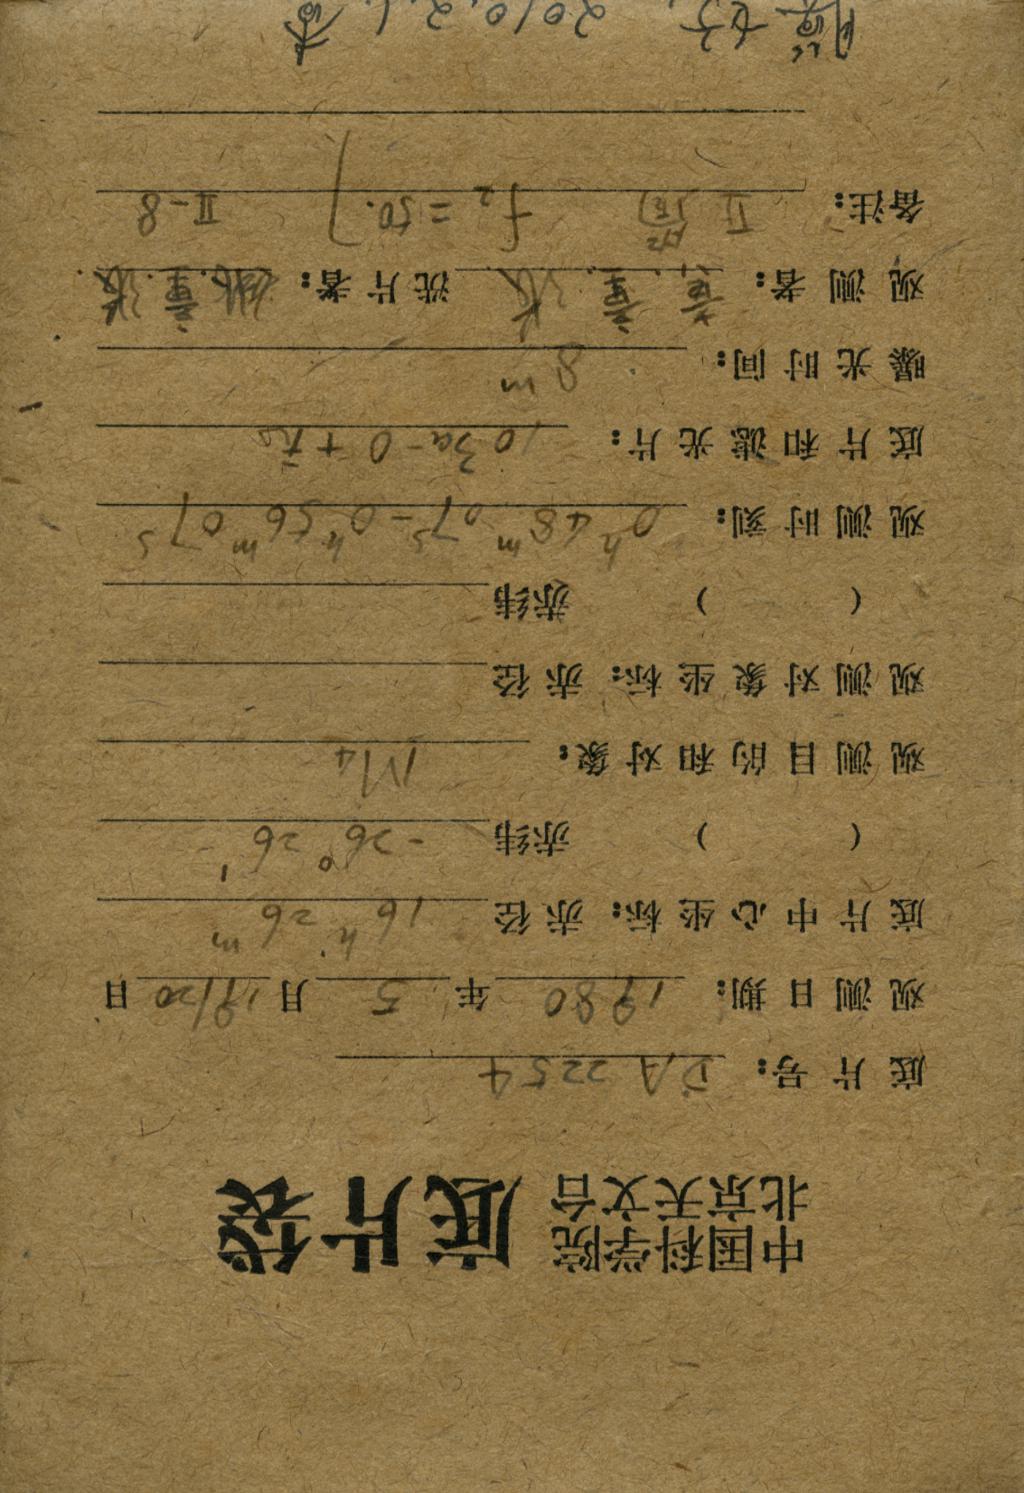 中国科学院
北京天文台 底片袋
底片号: DA 2254
观测日期: 1980 年 5 月 19/20 日
底片中心坐标: 赤径 16h 26m
( ) 赤纬 -26° 26′
观测目的和对象: M4
观测对象坐标: 赤径
( ) 赤纬
观测时刻: 0h 48m 07s - 0h 56m 07s
底片和滤光片: 103a-O +
曝光时间: 8m
观测者: 童 张 洗片者: 姚 童 张
备注: f2 = 50.7 II-8
2010.2.1.